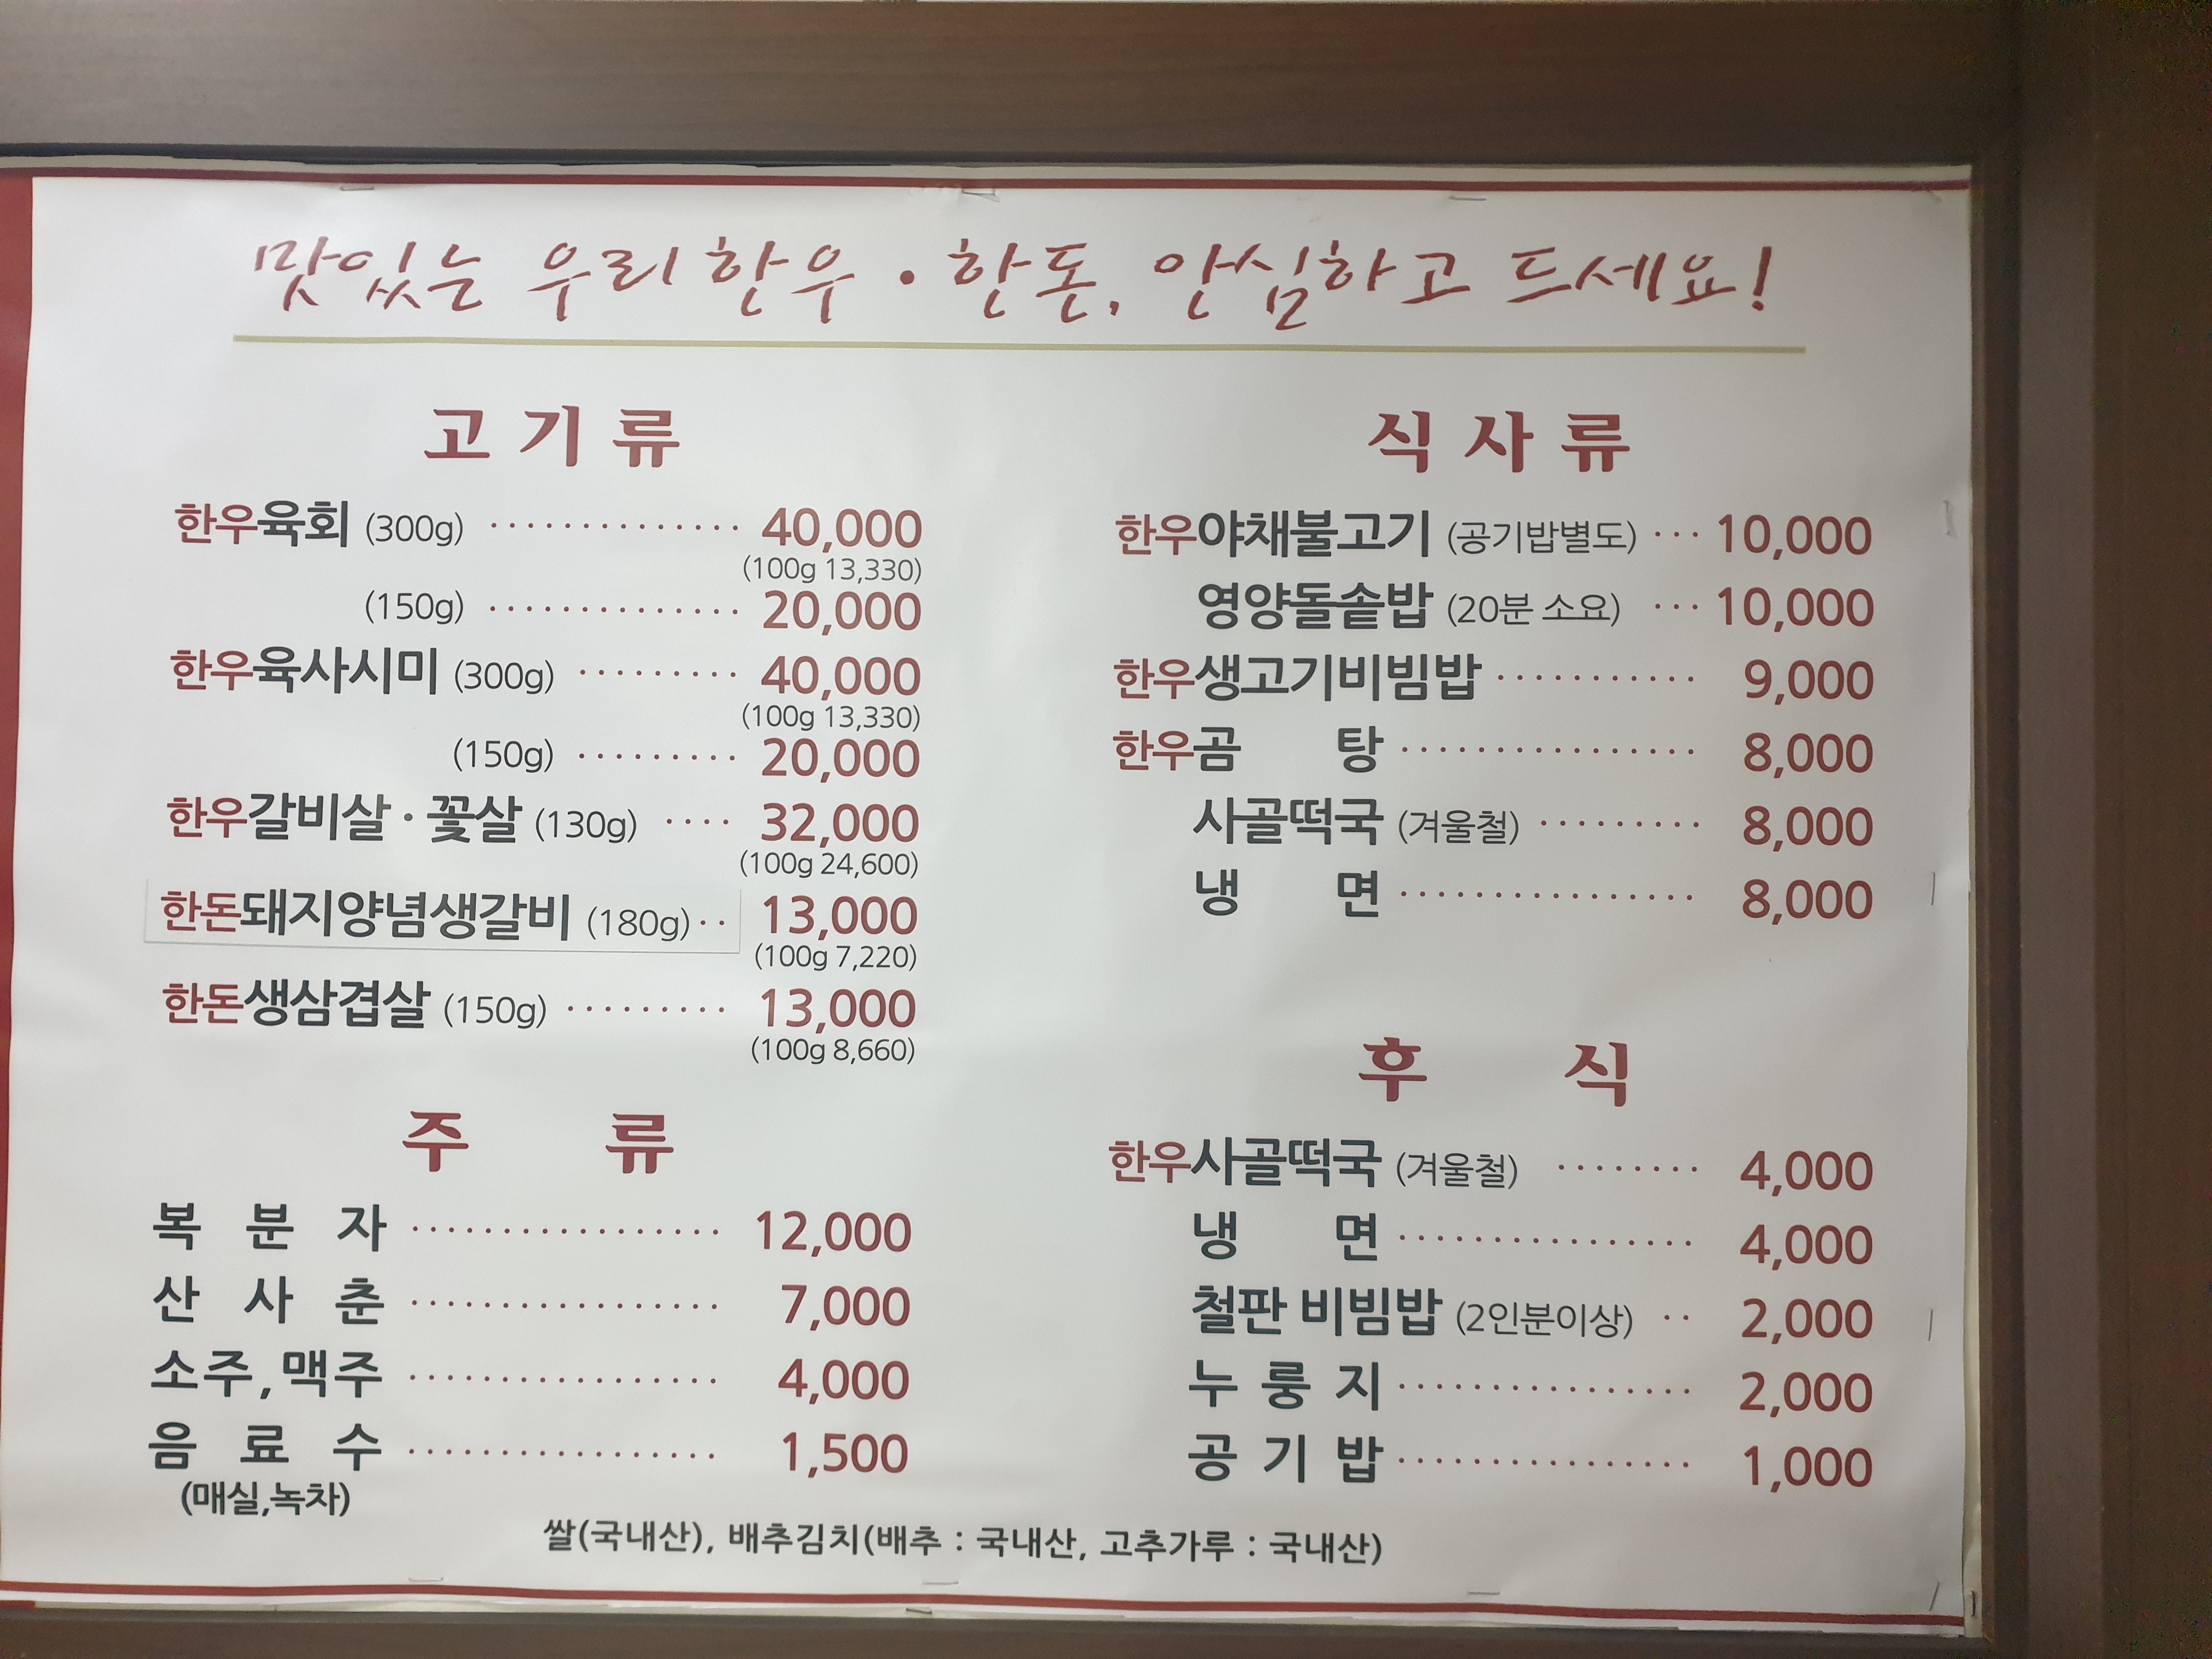 맛있는 우리 한우 · 한돈, 안심하고 드세요!
고기류
한우육회 (300g) ·············· 40,000
(100g 13,330)
(150g) ·············· 20,000
한우육사시미 (300g) ········· 40,000
(100g 13,330)
(150g) ········· 20,000
한우갈비살 · 꽃살 (130g) ···· 32,000
(100g 24,600)
한돈돼지양념생갈비 (180g) ·· 13,000
(100g 7,220)
한돈생삼겹살 (150g) ········· 13,000
(100g 8,660)
주류
복분자 ················· 12,000
산사춘 ················· 7,000
소주, 맥주 ················· 4,000
음료수 ················· 1,500
(매실,녹차)
식사류
한우야채불고기 (공기밥별도) ··· 10,000
영양돌솥밥 (20분 소요) ··· 10,000
한우생고기비빔밥 ··········· 9,000
한우곰탕 ················ 8,000
사골떡국 (겨울철) ········· 8,000
냉면 ················ 8,000
후식
한우사골떡국 (겨울철) ········ 4,000
냉면 ················ 4,000
철판 비빔밥 (2인분이상) ·· 2,000
누룽지 ················ 2,000
공기밥 ················ 1,000
쌀(국내산), 배추김치(배추 : 국내산, 고추가루 : 국내산)